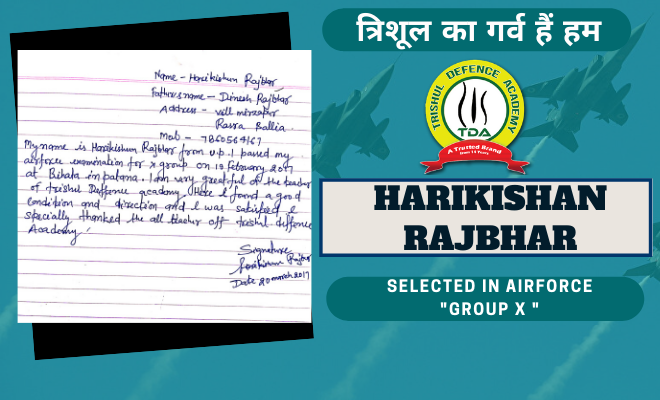 Name - Harikishun Rajbhar
Fathers name - Dinesh Rajbhar
Address - vill mirzapur
Rasra Ballia
Mob - 7860564167
My name is Harikishun Rajbhar from U.P. I passed my
airforce examination for x group on 13 February 2017
at Bihata in patana. I am very greatful of the teacher
of trishul Deffence academy. Here I found a good
condition and direction and I was satisfied. I
specially thanked the all teacher off trishul deffence
Academy.
Signature
Harikishun Rajbhar
Date 20 march 2017
त्रिशूल का गर्व हैं हम
TRISHUL DEFENCE ACADEMY
TDA
A Trusted Brand
HARIKISHAN
RAJBHAR
SELECTED IN AIRFORCE
"GROUP X "